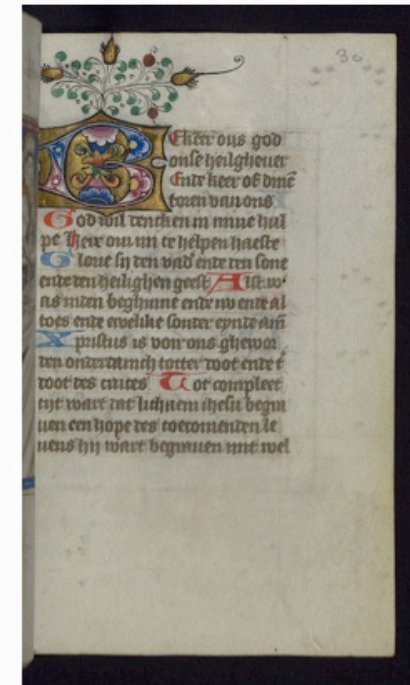 30
BEkeer ons god
onse heilghever
Ende keer of dinē
toren van ons
God wil dencken in mine hul
pe Here om mi te helpen haeste
Glorie si den vad' ende den sone
ende den heilighen geest Alst w
as inden beghinne ende nv ende al
toes ende ewelike sonder eynde amē
Xpristus is voir ons ghewor
den onderdanich totter doot ende t'
doot des cruces Tot compleet
tijt wart dat lichaem ihesu begra
uen een hope des toecomenden le
uens hij wart begrauen mit wel